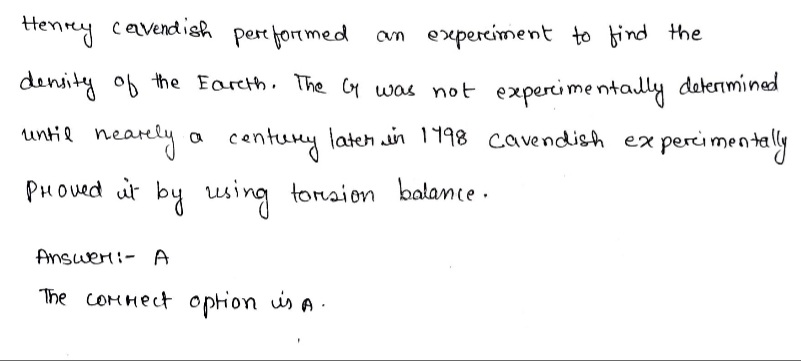 Henry Cavendish performed an experiment to find the
density of the Earth. The G was not experimentally determined
until nearly a century later in 1798 Cavendish experimentally
Proved it by using torsion balance.
Answer:- A
The correct option is A.